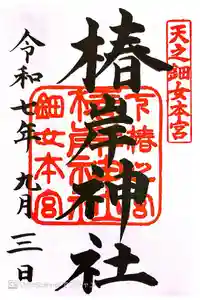 天之鈿女本宮
椿岸神社
鈿女本宮
令和七年 九月 三日